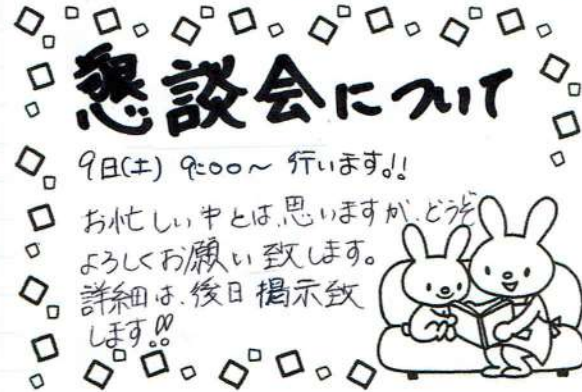 懇談会について
9日(土) 9:00〜 行います。!!
お忙しい中とは、思いますが、どうぞ
よろしくお願い致します。
詳細は、後日 掲示致
します。!!